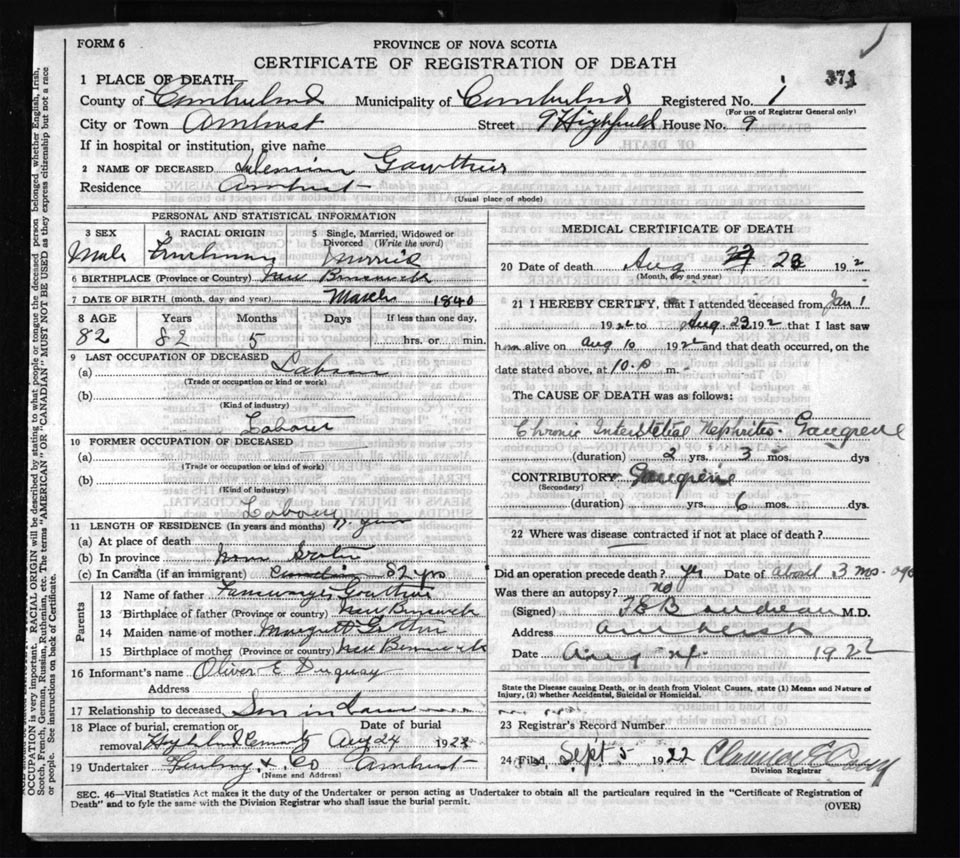 FORM 6
PROVINCE OF NOVA SCOTIA
371
CERTIFICATE OF REGISTRATION OF DEATH
1 PLACE OF DEATH
County of Cumberland Municipality of Cumberland Registered No. 1
(For use of Registrar General only)
City or Town Amherst Street 9 Highfield House No. 9
If in hospital or institution, give name
2 NAME OF DECEASED Gawthier
Residence Amherst
(Usual place of abode)
PERSONAL AND STATISTICAL INFORMATION
3 SEX
4 RACIAL ORIGIN
5 Single, Married, Widowed or Divorced (Write the word)
Male Frenchman
6 BIRTHPLACE (Province or Country) New Brunswick
7 DATE OF BIRTH (month, day and year) March 1840
8 AGE Years Months Days If less than one day,
82 82 5 hrs. or min.
9 LAST OCCUPATION OF DECEASED
(a) Labour
(Trade or occupation or kind of work)
(b)
(Kind of industry)
Labour
10 FORMER OCCUPATION OF DECEASED
(a)
(Trade or occupation or kind of work)
(b)
(Kind of industry)
Labour
11 LENGTH OF RESIDENCE (In years and months)
(a) At place of death
(b) In province Nova Scotia
(c) In Canada (if an immigrant) 82 yrs
Parents
12 Name of father
13 Birthplace of father (Province or country) New Brunswick
14 Maiden name of mother Margret
15 Birthplace of mother (Province or country) New Brunswick
16 Informant's name Oliver E Duguay
Address
17 Relationship to deceased Son in Law
18 Place of burial, cremation or removal Highland Cemetry Date of burial Aug 24 1923
19 Undertaker & Co Amherst
(Name and Address)
MEDICAL CERTIFICATE OF DEATH
20 Date of death Aug 23 192
(Month, day and year)
21 I HEREBY CERTIFY, that I attended deceased from Jan 1
1922 to Aug. 23 192 that I last saw
him alive on Aug 10 1922 and that death occurred, on
date stated above, at 10. m.
The CAUSE OF DEATH was as follows:
Chronic Interstetial Nephrites. Gangrene
(duration) 2 yrs. 3 mos. dys
CONTRIBUTORY Gangrene
(Secondary)
(duration) yrs. 6 mos. dys.
22 Where was disease contracted if not at place of death?
Did an operation precede death? yes Date of about 3 mos. ago
Was there an autopsy? no
(Signed) M.D.
Address Amherst
Date Aug 24 1922
State the Disease causing Death, or in death from Violent Causes, state (1) Means and Nature of
Injury, (2) whether Accidental, Suicidal or Homicidal.
23 Registrar's Record Number
24 Filed Sept 5 1922
Division Registrar
SEC. 46—Vital Statistics Act makes it the duty of the Undertaker or person acting as Undertaker to obtain all the particulars required in the "Certificate of Registration of
Death" and to fyle the same with the Division Registrar who shall issue the burial permit.
(OVER)
OCCUPATION is very important. RACIAL ORIGIN will be described by stating to what people or tongue the deceased person belonged whether English, Irish,
Scotch, French, German, Russian, Ruthenian, etc. The terms "AMERICAN" OR "CANADIAN" MUST NOT BE USED as they express citizenship but not a race
or people. See instructions on back of Certificate.